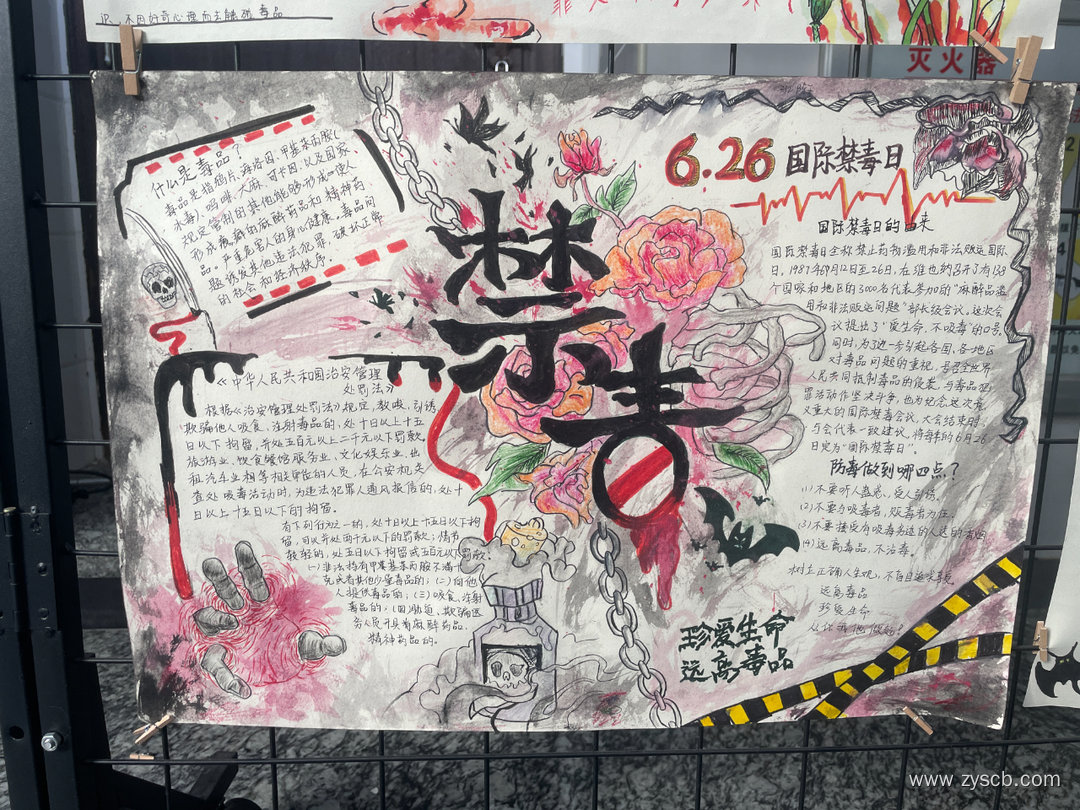 识,不因好奇心理而去触碰毒品
灭火器
什么是毒品?
毒品是指鸦片、海洛因、甲基苯丙胺(
冰毒)、吗啡、大麻、可卡因,以及国家
规定管制的其他能够形成使人
形成瘾癖的麻醉药品和精神药
品。严重危害人的身心健康。毒品问
题诱发其他违法犯罪,破坏正常
的社会和经济秩序。
《中华人民共和国治安管理
处罚法》
根据《治安管理处罚法》规定,教唆、引诱、
欺骗他人吸食、注射毒品的,处十日以上十五
日以下拘留,并处五百元以上二千元以下罚款。
旅游业、饮食餐馆服务业、文化娱乐业、出
租汽车业相等相关单位的人员,在公安机关
查处吸毒活动时,为违法犯罪人通风报信的,处十
日以上十五日以下的拘留。
有下列行为之一的,处十日以上十五日以下拘
留,可以并处两千元以下的罚款;情节
较轻的,处五日以下拘留或五百元以下罚款:
(一)非法持有甲基苯丙胺不满十
克或者其他少量毒品的;(二)向他
人提供毒品的;(三)吸食、注射
毒品的;(四)胁迫、欺骗医
务人员开具麻醉药品、
精神药品的。
禁毒
6.26 国际禁毒日
国际禁毒日的由来
国际禁毒日全称禁止药物滥用和非法贩运国际
日,1987年6月12日至26日,在维也纳召开了有138
个国家和地区的3000名代表参加的“麻醉品滥
用和非法贩运问题”部长级会议。这次会
议提出了“爱生命,不吸毒”的口号。
同时,为了进一步引起各国、各地区
对毒品问题的重视,号召全世界
人民共同抵制毒品的侵袭,与毒品犯
罪活动作坚决斗争,也为纪念这次意
义重大的国际禁毒会议,大会结束时
与会代表一致建议,将每年的6月26
日定为“国际禁毒日”。
防毒做到哪四点?
(1)不要听人蛊惑、受人引诱。
(2)不要与吸毒者、贩毒者为伍。
(3)不要接受有吸毒者送的人送的香烟
(4)远离毒品,不沾毒。
树立正确人生观,不盲目追求享受
远离毒品
珍爱生命
从你我他做起!
珍爱生命
远离毒品
www.zyscb.com